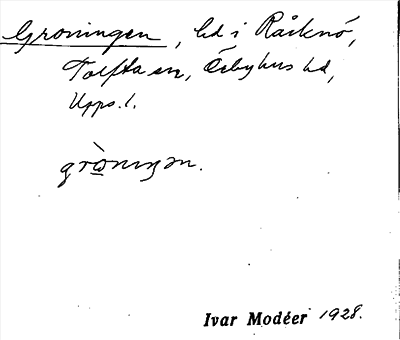 Groningen, ld i Råknö,
Tolfta sn, Örbyhus hd,
Upps. l.
gròningən.
Ivar Modéer 1928.